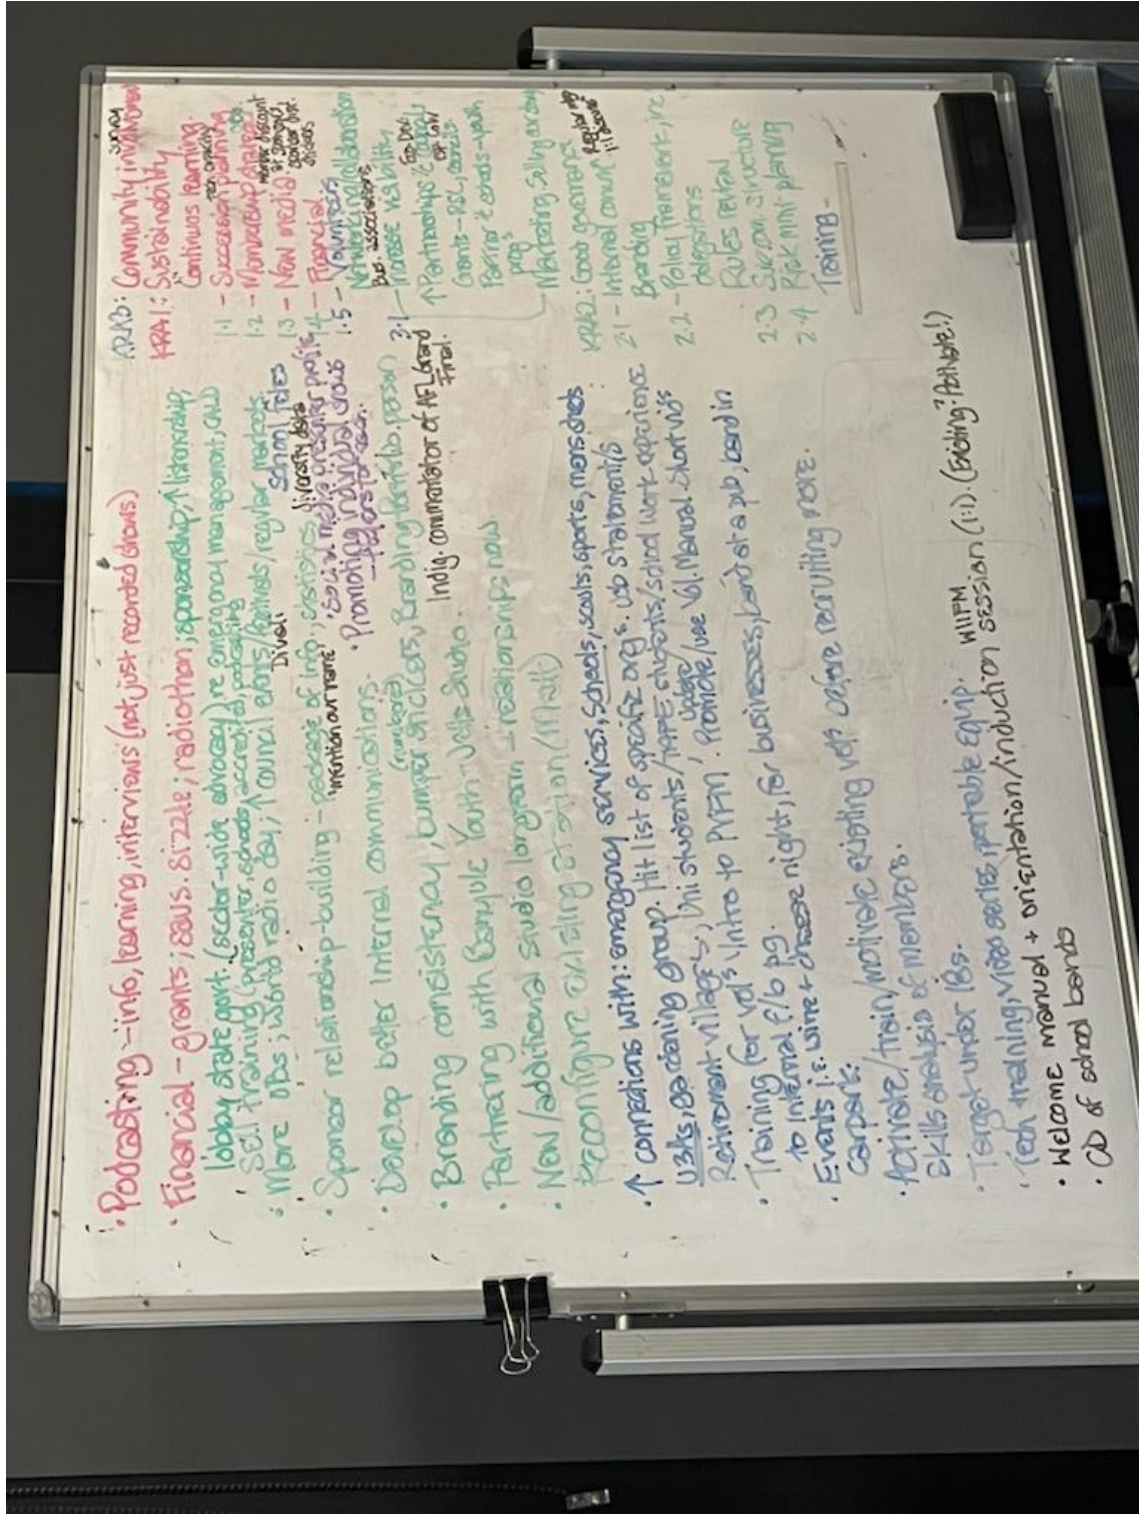 • Podcasting - info, learning, interviews (not just recorded shows)
• Financial - grants; radiothon; sponsorship; ↑ listenership;
lobby state govt. (sector-wide advocacy) re emergency management, CALD
• training (presenter, schools, accredited, podcasting
• More OBs; world radio day; ↑ council events/festivals/regular markets
Divali
School fetes
• Sponsor relationship-building - package of info, statistics, diversity data
"mention our name"
• Social media presenter profile
• Promoting individual shows
• Develop better internal communications.
• Branding consistency, bumper stickers, Branding Portfolio person
(numbered)
Indig. commentator of AFL Grand
Final.
• Partnering with Banyule Youth - Jets Studio.
• New/additional studio longterm - relationships now.
Reconfigure existing station (m
• ↑ connections with: emergency services, schools, scouts, sports, mens sheds
U3As, gardening group. Hit list of specific orgs. Job statement/s
Retirement villages, Uni students/TAFE students/school work experience
• Training for vols, Intro to PVFM. Promote/use Vol. Manual. Short vids
update
to internal f/b pg.
• Events i.e. wine + cheese night, for businesses, band at a pub, band in
carpark.
• Activate/train/motivate existing vols before recruiting more.
Skills analysis of members.
• Target under 18s.
• Tech training, video series, portable equip.
WIIFM
• Welcome manual + orientation/induction session (1:1). (Existing? Activate!)
• CD of school bands
KRA3: Community involvement
survey
KRA1: Sustainability
Continuos learning.
tech capacity
1.1 - Succession planning
1.2 - Membership strategy
1.3 - New media
1.4 - Financial
1.5 - Volunteers
Networking/collaboration
Bus. associations
3.1 - Increase visibility
↑ Partnerships
Grants - RSL, councils
Partner c schools - youth
prog's
Marketing
KRA2: Good governance
2.1 - Internal commun.
Regular mtg
1:1
Branding
2.2 - Policy framework, inc
delegations
• Rules review
2.3 Subcom. structure
2.4 Risk mmt planning
Training -